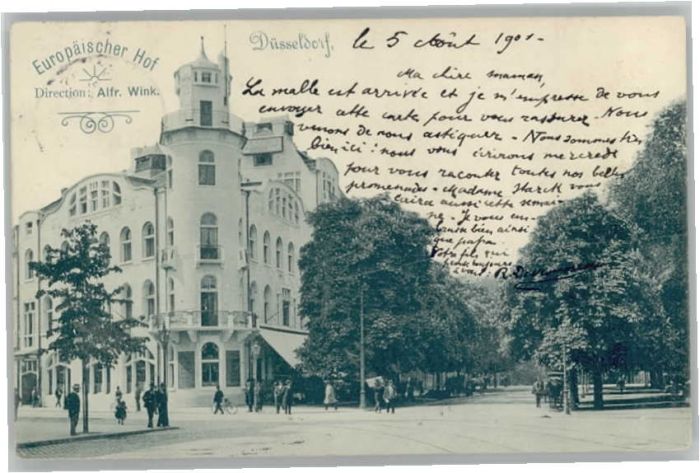 Europäischer Hof
Direction: Alfr. Wink.
Düsseldorf,
le 5 Août 1901-
Ma chère maman,
La malle est arrivée et je m'empresse de vous
envoyer cette carte pour vous rassurer. Nous
venons de nous astiquer. Nous sommes très
bien ici: nous vous écrirons mercredi
pour vous raconter toutes nos belles
promenades. Madame Starck vous
écrira aussi cette semai-
ne. Je vous em-
brasse bien ainsi
que papa.
Votre fils qui
pense toujours
à vous